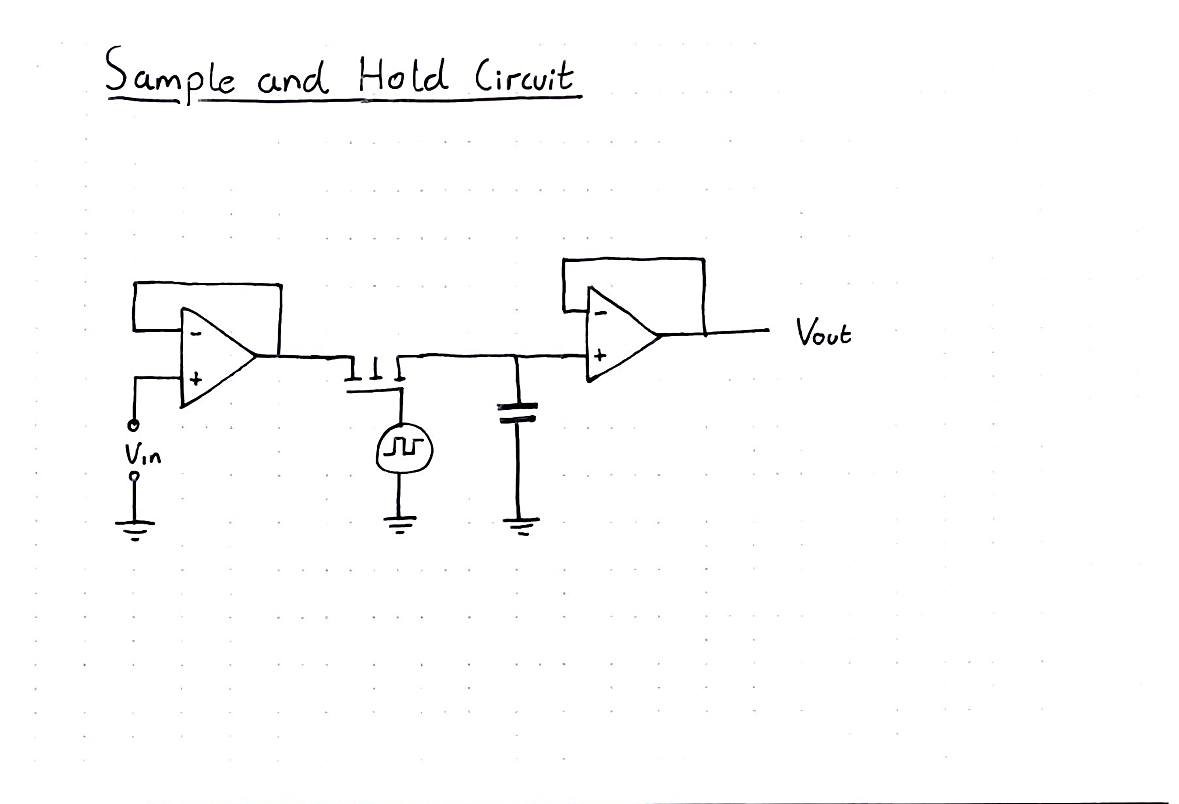 Sample and Hold Circuit
-
+
Vin
-
+
Vout